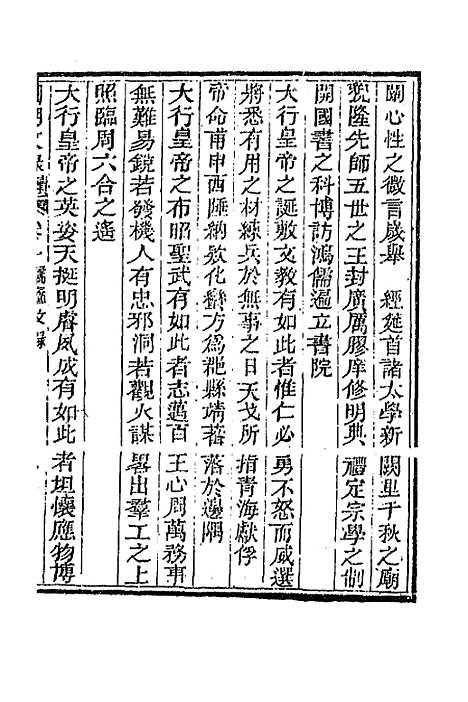 闡心性之微言歲舉　經筵首諸太學新　闕里千秋之廟
貌隆先師五世之王封廣厲膠庠修明典　禮定宗學之制
開國書之科博訪鴻儒遍立書院
大行皇帝之誕敷文教有如此者惟仁必　勇不怒而威選
將悉有用之材練兵於無事之日天戈所　指青海獻俘
帝命甫申西陲納欵化蠻方為郡縣靖蕃　落於邊隅
大行皇帝之布昭聖武有如此者志邁百　王心周萬務事
無難易銳若發機人有忠邪洞若觀火謀　畧出羣工之上
照臨周六合之遙
大行皇帝之英姿天挺明睿夙成有如此　者坦懷應物博